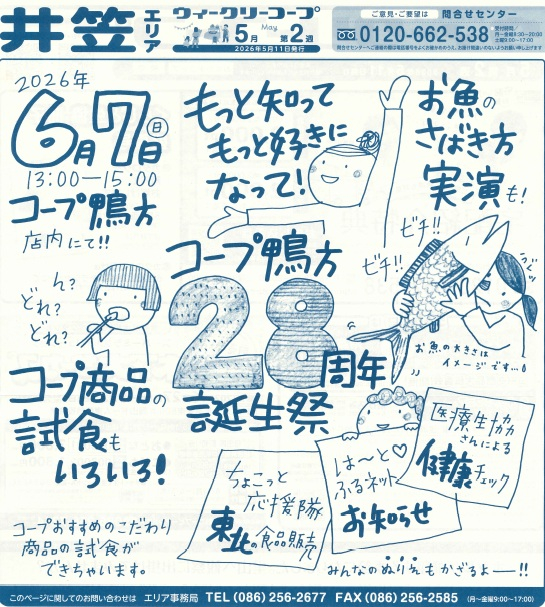 井笠エリア
ウィークリーコープ
5月 May 第2週
2026年5月11日発行
ご意見・ご要望は 問合せセンター
0120-662-538
受付時間
月〜金曜8:30〜20:00
土曜9:00〜17:00
問合せセンターへご連絡の際は電話番号をよくお確かめのうえ、お掛け間違いのないようお願い申し上げます
2026年
6月7日㊐
13:00―15:00
コープ鴨方
店内にて!!
もっと知って
もっと好きに
なって!
お魚の
さばき方
実演も!
ビチ!!
ビチ!!
お魚の大きさは
イメージです…。
コープ鴨方
28周年
誕生祭
ん?
どれ?
どれ?
コープ商品の
試食も
いろいろ!
コープおすすめのこだわり
商品の試食が
できちゃいます。
ちょこっと
応援隊
東北食品販売
は〜と♡
ふるネット
お知らせ
医療生協
さんによる
健康チェック
みんなのぬりえもかざるよ―!!
このページに関してのお問い合わせは エリア事務局 TEL (086) 256-2677 FAX (086) 256-2585 (月〜金曜9:00〜17:00)